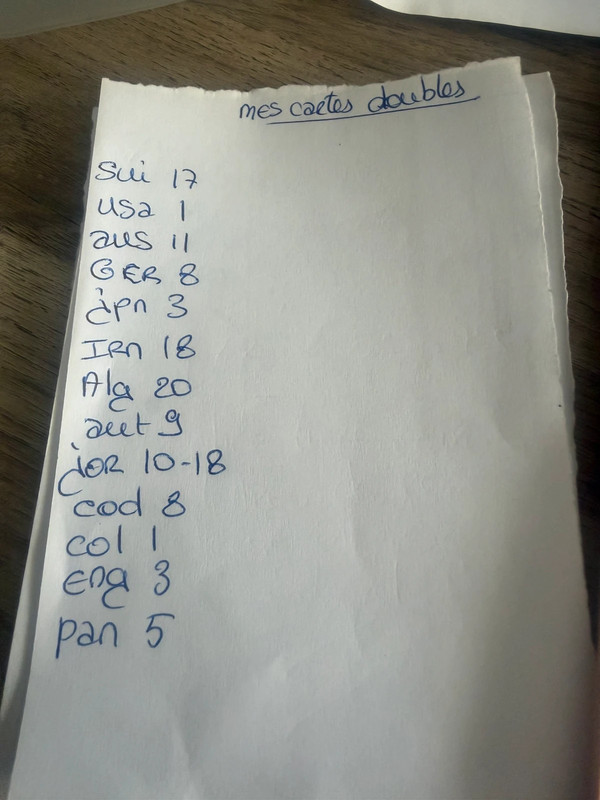 mes cartes doubles
Sui 17
usa 1
aus 11
GER 8
jpn 3
IRn 18
Alg 20
aut 9
joR 10-18
cod 8
col 1
eng 3
pan 5